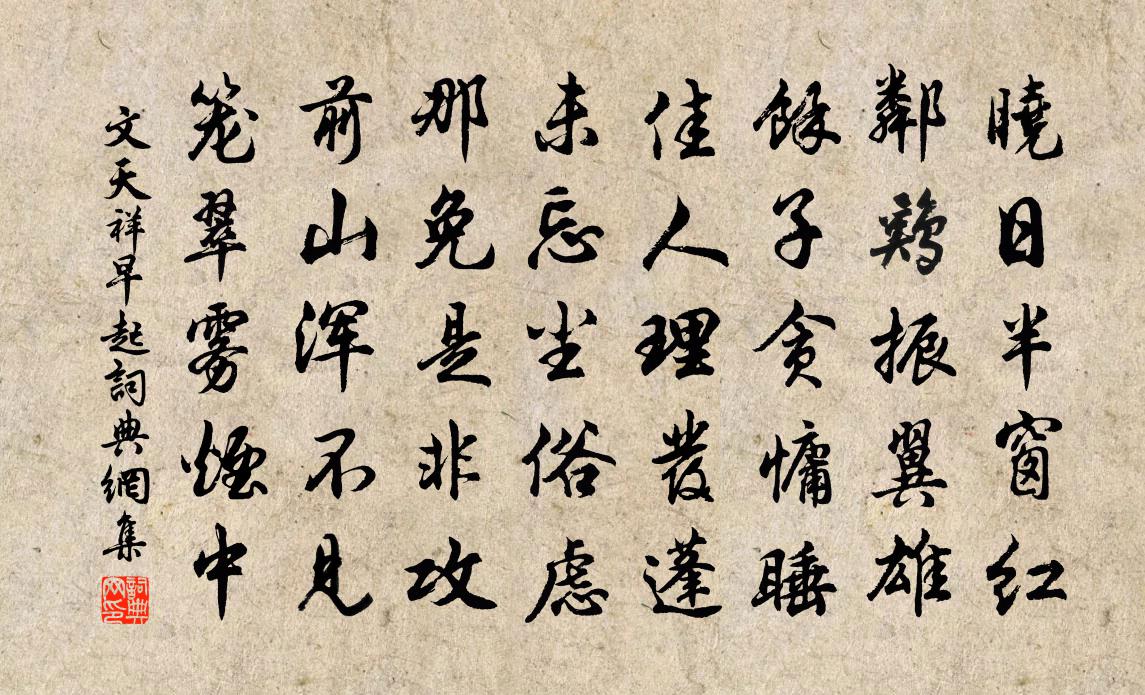 曉日半窗红
鄰鷄振翼雄
餘子贪慵睡
佳人理發蓬
未忘尘俗虑
那免是非攻
前山浑不見
笼翠雾煙中
文天祥早起詞典網集
詞典网印